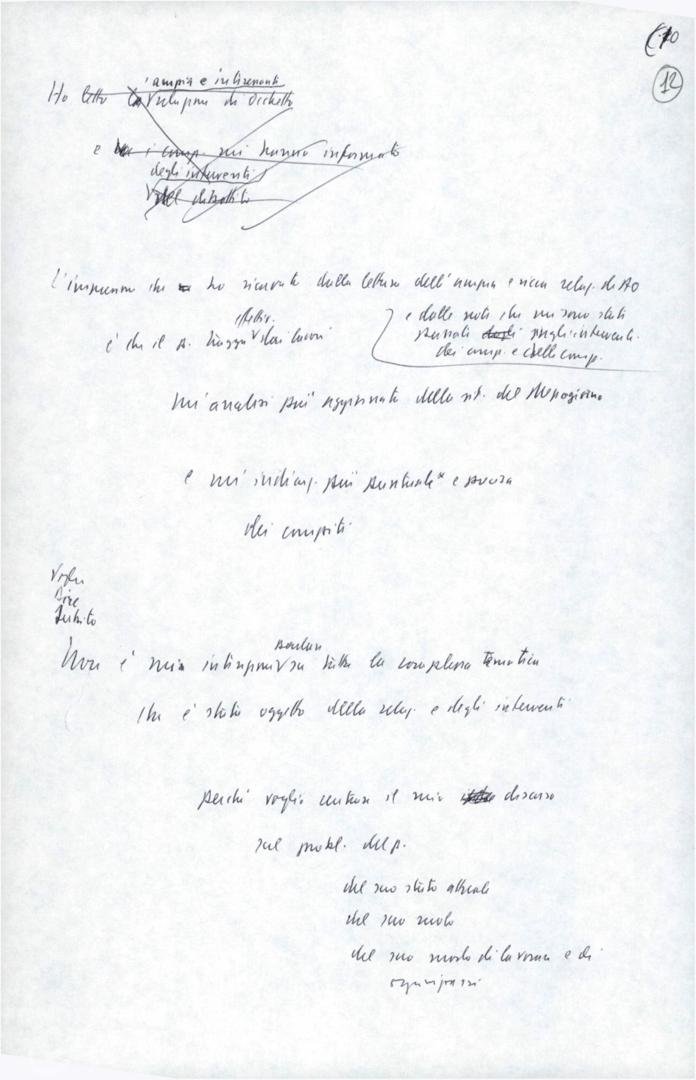 12
ampia e interessante
Ho letto la relazione di
e i comp. mi hanno informato
degli interventi
del dibattito
L'impressione che ho ricavato dalla lettura dell'ampia e ricca relaz. di
e dalle note che mi sono state
è che il p. dai lavori
passate sugli interventi
dei comp. e delle comp.
un'analisi più aggiornata della sit. del Mezzogiorno
e un'indicaz. più puntuale e precisa
dei compiti
Voglio
dire
subito
parlare
Non è mia intenzione su tutta la complessa tematica
che è stata oggetto della relaz. e degli interventi
perché voglio centrare il mio discorso
sul probl. del p.
del suo stato attuale
del suo ruolo
del suo modo di lavorare e di
organizzarsi